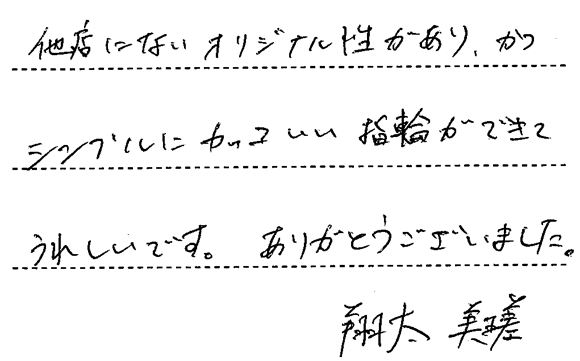 他店にないオリジナル性があり、かつ
シンプルにカッコいい指輪ができて
うれしいです。 ありがとうございました。
翔太 美瑳